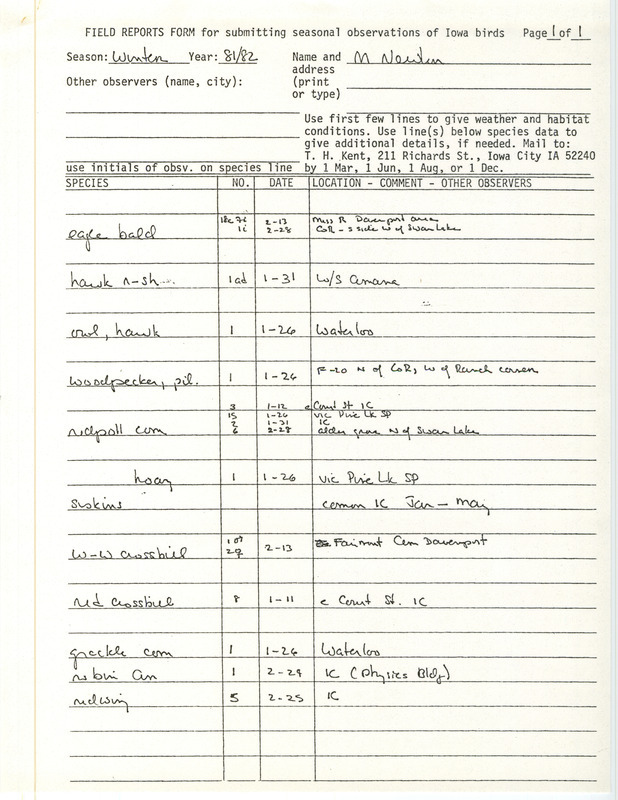 FIELD REPORTS FORM for submitting seasonal observations of Iowa birds Page 1 of 1
Season: Winter Year: 81/82 Name and M Newlin
Other observers (name, city): address
(print
or type)
Use first few lines to give weather and habitat
conditions. Use line(s) below species data to
give additional details, if needed. Mail to:
T. H. Kent, 211 Richards St., Iowa City IA 52240
use initials of obsv. on species line by 1 Mar, 1 Jun, 1 Aug, or 1 Dec.
SPECIES NO. DATE LOCATION - COMMENT - OTHER OBSERVERS
18a 7i 2-13 Miss R Davenport area
eagle bald 1i 2-28 CoR - s side W of Swan Lake
hawk r-sh 1ad 1-31 W/S Amana
owl, hawk 1 1-26 Waterloo
woodpecker, pil. 1 1-26 F-20 N of CoR, W of Ranch
3 1-12 e Court St IC
15 1-26 vic Pine Lk SP
2 1-31 IC
redpoll com 6 2-28 alder grove N of Swan Lake
hoary 1 1-26 vic Pine Lk SP
siskins common IC Jan - May
1♂
W-W crossbill 2♀ 2-13 Fairmount Cem Davenport
red crossbill 8 1-11 e Court St. IC
grackle com 1 1-26 Waterloo
robin Am 1 2-24 IC (Physics Bldg)
redwing 5 2-25 IC